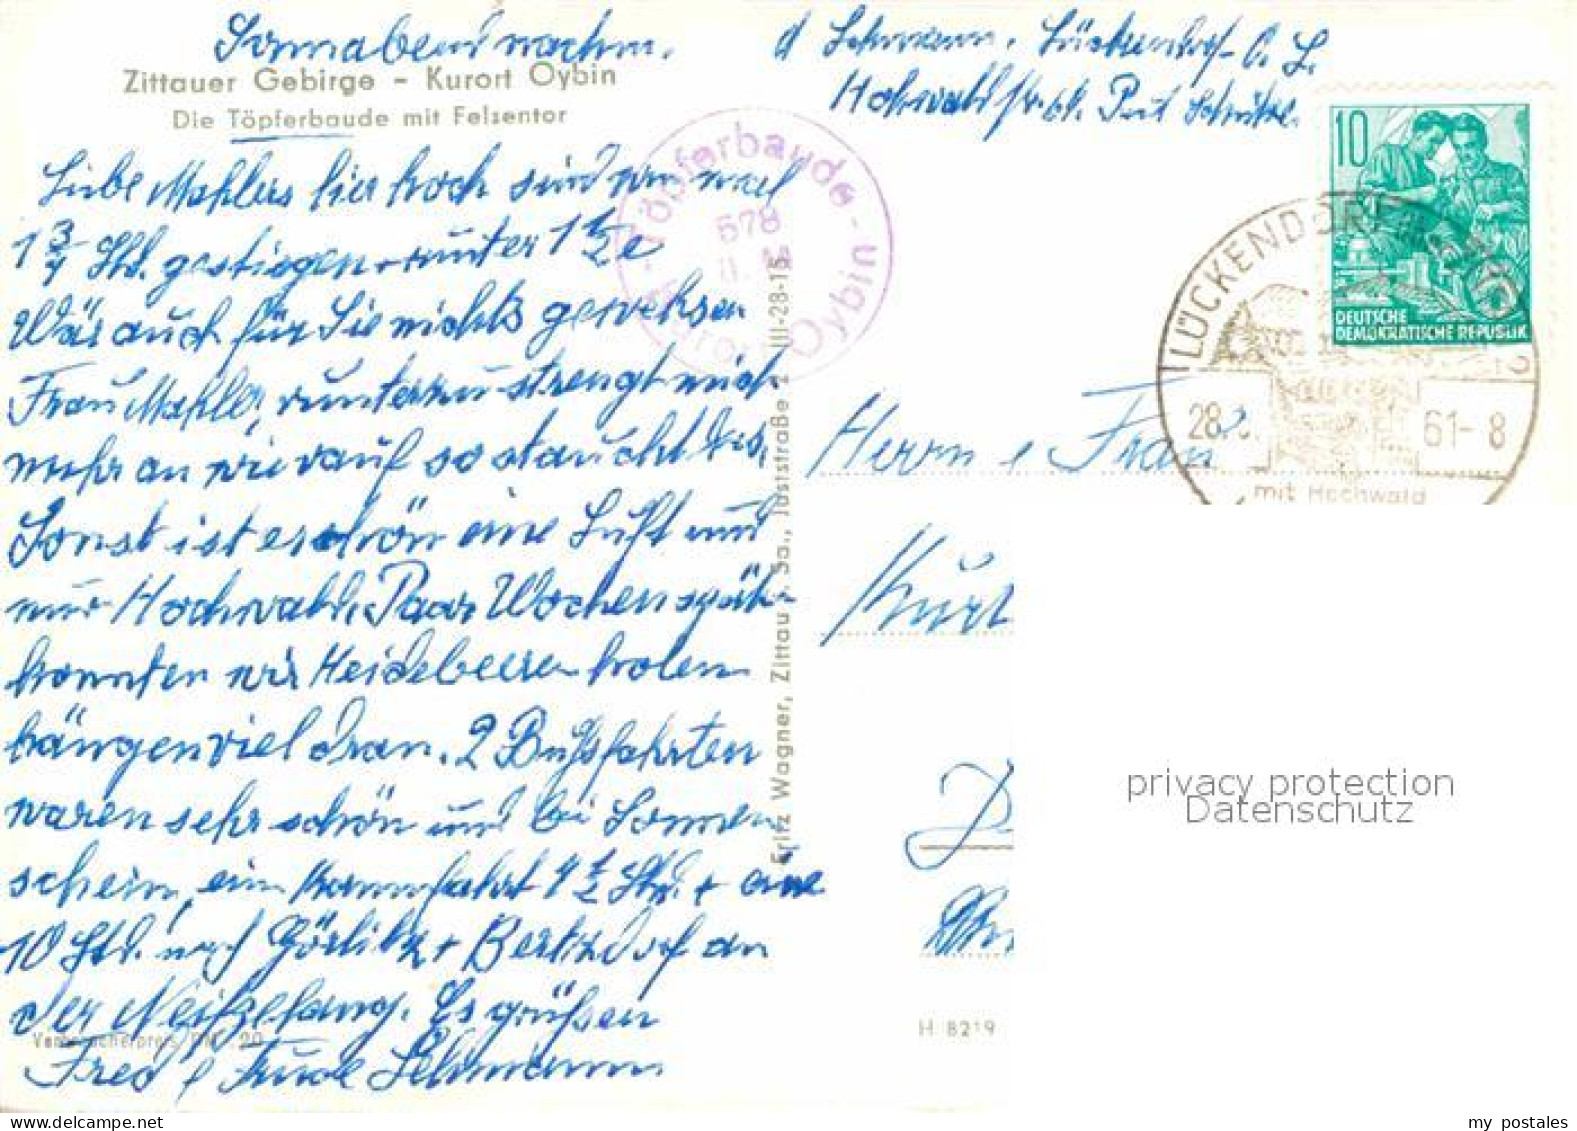 Sonnabend nachm.
Zittauer Gebirge – Kurort Oybin
Die Töpferbaude mit Felsentor
Liebe Mahlers hier hoch sind wir mal
1 3/4 Std. gestiegen + runter 1 1/2
Wär auch für Sie nichts gewesen
Frau Mahler, runterzu strengt mich
mehr an wie rauf so staucht das.
Sonst ist es schön eine Luft und
nur Hochwald. Paar Wochen spät.
konnten wir Heidebeeren holen
hängen viel dran. 2 Bußfahrten
waren sehr schön und bei Sonnen
schein, ein Kammfahrt 4 1/2 Std. + eine
10 Std. nach Görlitz + Bertzdorf an
der Neiße lang. Es grüßen
Fred & Trude Lehmann
Verbraucherpreis DM -.20
Lückendorf O. L.
Hochwaldstr.
Töpferbaude - Kurort Oybin
578
Fritz Wagner, Zittau i. Sa., Juststraße 2 III-28-15
10
DEUTSCHE
DEMOKRATISCHE REPUBLIK
LÜCKENDORF
28. 61-8
mit Hochwald
Herrn & Frau
Kurt
H 8219
privacy protection
Datenschutz
my postales